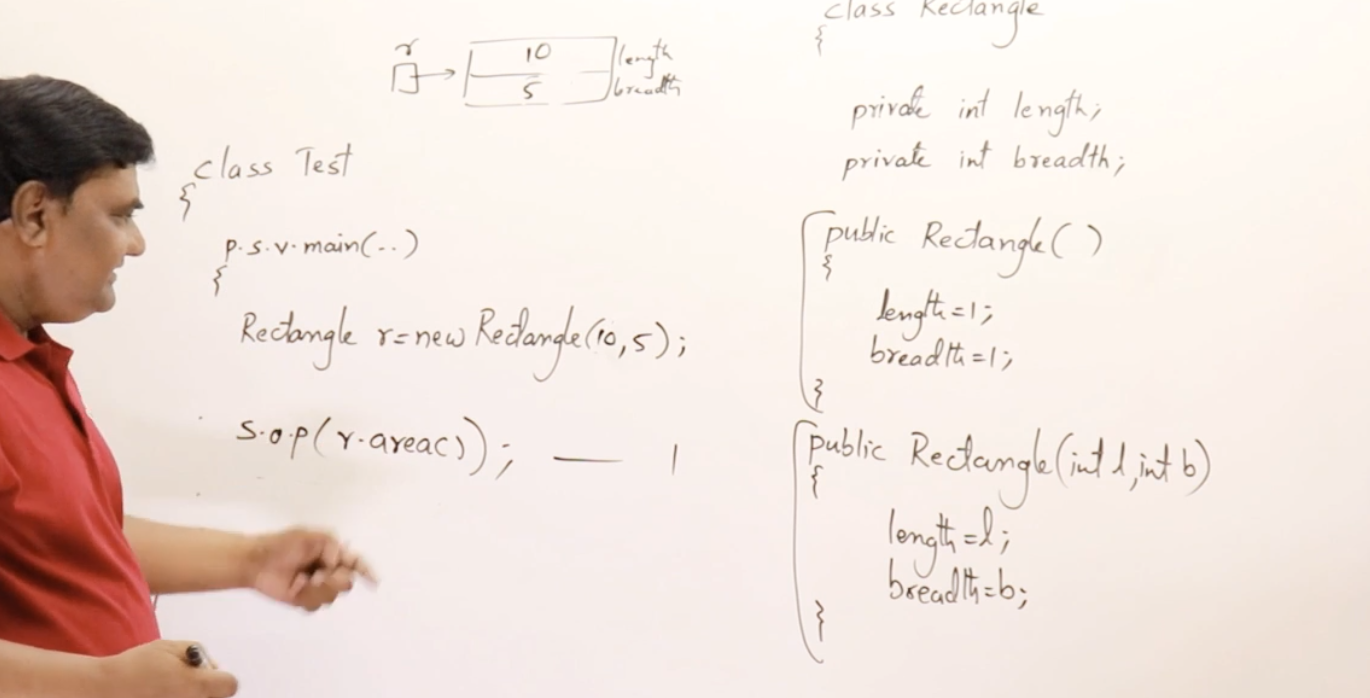 r
10
length
5
breadth
class Test
{
p.s.v.main(..)
{
Rectangle r=new Rectangle(10,5);
s.o.p(r.area()); — 1
class Rectangle
{
private int length;
private int breadth;
public Rectangle()
{
length=1;
breadth=1;
}
public Rectangle(int l,int b)
{
length=l;
breadth=b;
}